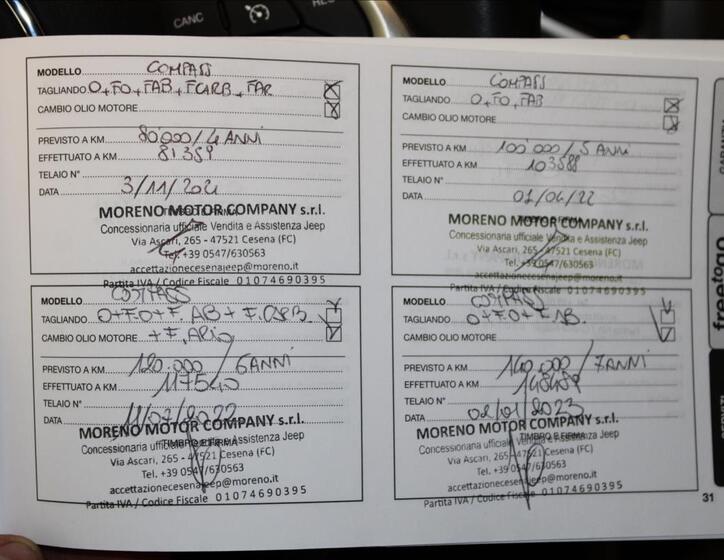 CANC
MODELLO COMPASS
TAGLIANDO O+FO+FAB+FCARB+FAR
CAMBIO OLIO MOTORE
PREVISTO A KM 80'000/4 ANNI
EFFETTUATO A KM 81359
TELAIO N°
DATA 3/11/202
TIMBRO E FIRMA
MORENO MOTOR COMPANY s.r.l.
Concessionaria ufficiale Vendita e Assistenza Jeep
Via Ascari, 265 - 47521 Cesena (FC)
Tel. +39 0547/630563
accettazionecesenajeep@moreno.it
Partita IVA / Codice Fiscale 01074690395
MODELLO COMPASS
TAGLIANDO O+FO+FAB
CAMBIO OLIO MOTORE
PREVISTO A KM 100'000/5 ANNI
EFFETTUATO A KM 103588
TELAIO N°
DATA 01/04/22
MORENO MOTOR COMPANY s.r.l.
Concessionaria ufficiale Vendita e Assistenza Jeep
Via Ascari, 265 - 47521 Cesena (FC)
Tel. +39 0547/630563
accettazionecesenajeep@moreno.it
Partita IVA / Codice Fiscale 01074690395
MODELLO COMPASS
TAGLIANDO O+F.O+F.AB+F.
CAMBIO OLIO MOTORE +F.
PREVISTO A KM 120.000/6ANNI
EFFETTUATO A KM 117540
TELAIO N°
DATA 11/07/2022
MORENO MOTOR COMPANY s.r.l.
TIMBRO E FIRMA
Concessionaria ufficiale Vendita e Assistenza Jeep
Via Ascari, 265 - 47521 Cesena (FC)
Tel. +39 0547/630563
accettazionecesenajeep@moreno.it
Partita IVA / Codice Fiscale 01074690395
MODELLO COMPASS
TAGLIANDO O+F.O+F.AB.
CAMBIO OLIO MOTORE
PREVISTO A KM 140.000/7ANNI
EFFETTUATO A KM
TELAIO N°
DATA 02/01/2023
MORENO MOTOR COMPANY s.r.l.
TIMBRO E FIRMA
Concessionaria ufficiale Vendita e Assistenza Jeep
Via Ascari, 265 - 47521 Cesena (FC)
Tel. +39 0547/630563
accettazionecesenajeep@moreno.it
Partita IVA / Codice Fiscale 01074690395
31